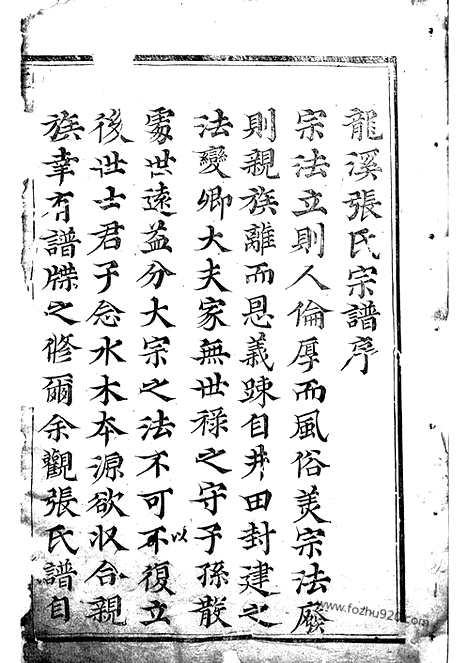 龍溪張氏宗譜序
宗法立則人倫厚而風俗美宗法廢
則親族離而恩義踈自井田封建之
法變卿大夫家無世祿之守子孫散
處世遠益分大宗之法不可不以復立
後世士君子念水木本源欲收合親
族幸有譜牒之修爾余觀張氏譜自
www.fozhu920.com